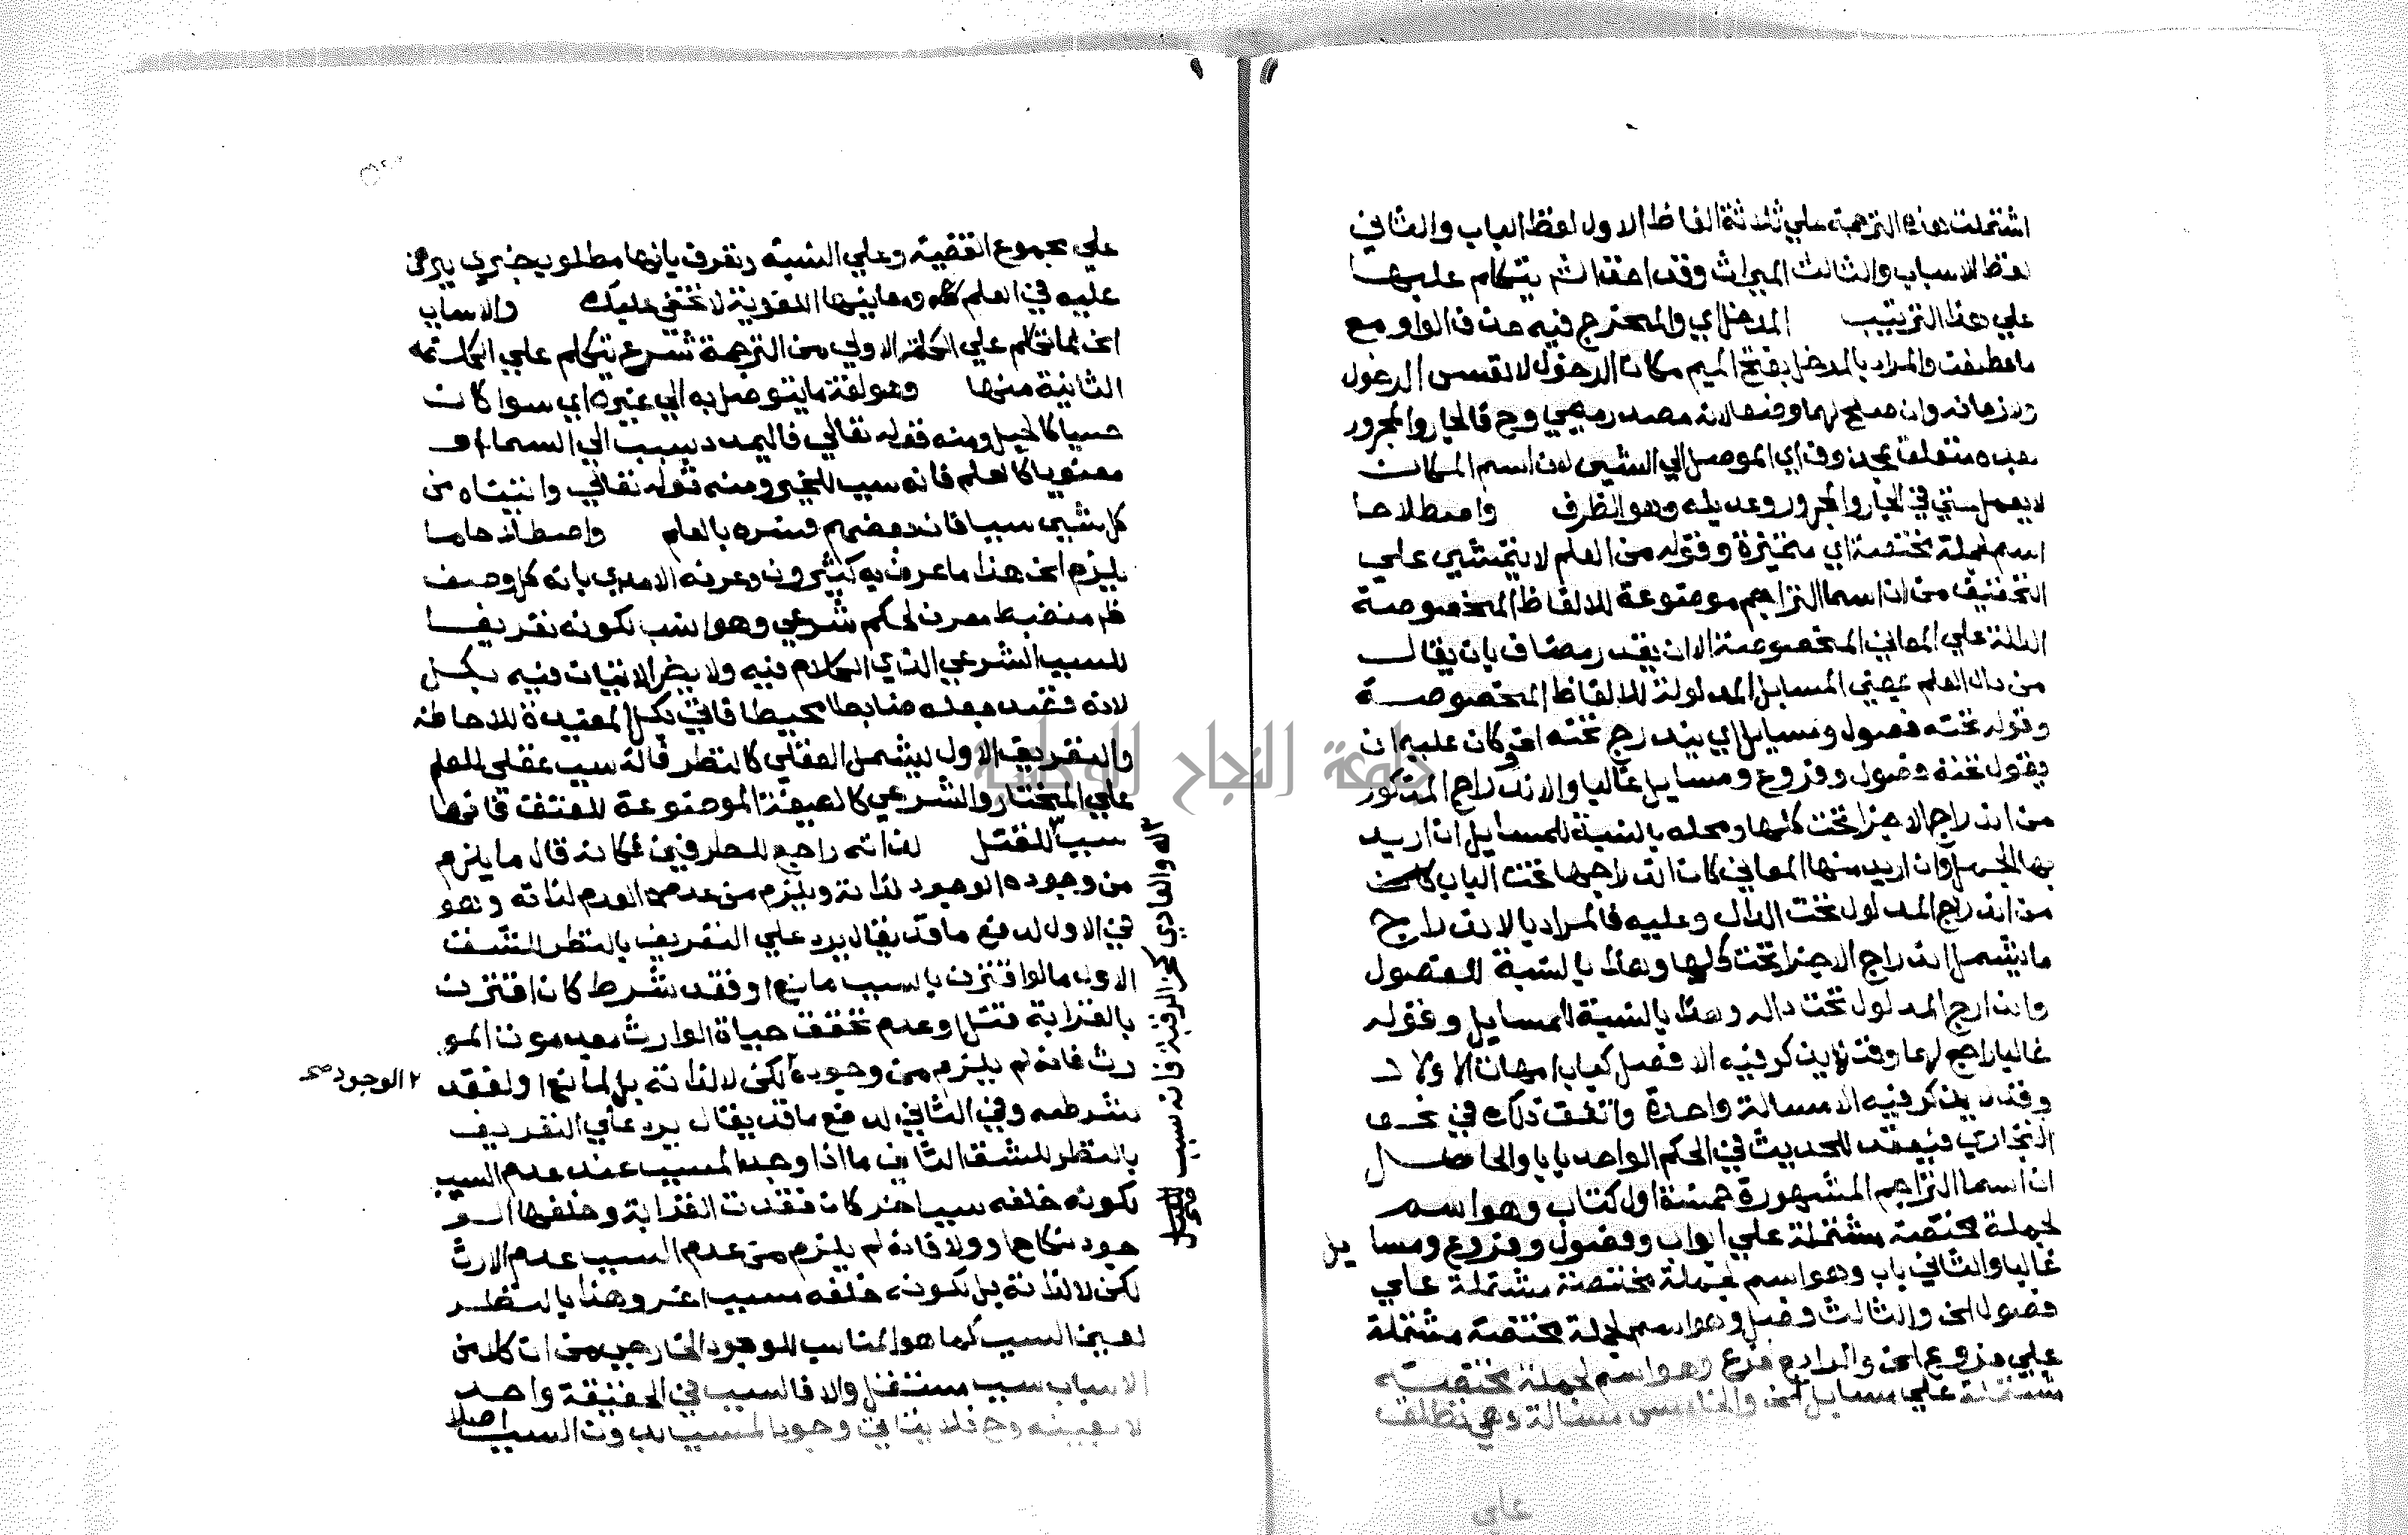 اشتملت هذه الترجمة علي ثلاثة الفاظ الاول لفظ الباب والثاني
لفظ الاسباب والثالث الميراث وقد اخذ الشم يتكلم عليها
علي هذا الترتيب المدخل اي والمخرج فيه حذف الواو مع
ما عطفت والمراد بالمدخل بفتح الميم مكان الدخول لا نفس الدخول
ولا زمانه وان صلح لهما وضعا لانه مصدر ميمي وح فالجار والمجرور
بعده متعلق بمحذوف اي الموصل الي الشيى لان اسم المكان
لا يعمل ستي في الجار والمجرور وعديله وهو الظرف واصطلاحا
اسم لجملة مختصة اي متميزة وقوله من العلم لا يتمشي علي
التحقيق من ان اسما التراجم موضوعة للالفاظ المخصوصة
الدالة علي المعاني المخصوصة الا ان يقدر مضاف بان يقال
من دال العلم يعني المسايل المدلولة للالفاظ المخصوصة
وقوله تحته فصول ومسايل اي يندرج تحته الخ وكان عليه ان
يقول تحته فصول وفروع ومسايل غالبا والاندراج المذكور
من اندراج الاجزا تحت كلها ومحله بالنسبة للمسايل ان اريد
بها الجمل وان اريد منها المعاني كان اندراجها تحت الباب
من اندراج المدلول تحت الدال وعليه فالمراد بالاندراج
ما يشمل اندراج الاجزا تحت كلها وهذا بالنسبة للفصول
واندارج المدلول تحت داله وهذا بالنسبة للمسايل وقوله
غالبا راجع لهما وقد لا يذكر فيه الا فصل كباب امهات الاولاد
وقد لا يذكر فيه الا مسالة واحدة واتفق ذلك في نحو
البخاري فيعقد للحديث في الحكم الواحد بابا والحاصل
ان اسما التراجم المشهورة خمسة اول كتاب وهو اسم
لجملة مختصة مشتملة علي ابواب وفصول وفروع ومسايل
غالبا والثاني باب وهو اسم لجملة مختصة مشتملة علي
فصول الخ والثالث وفصل وهو اسم لجملة مختصة مشتملة
علي فروع الخ والرابع فرع وهو اسم لجملة مختصة
مشتملة علي مسايل الخ والخامس مسالة وهي تطلق
علي
علي مجموع القضية وعلي النسبة وتعرف بانها مطلوب خبري يبرهن
عليه في العلم ومعانيها اللغوية لا تخفي عليك والاسباب
الخ لما تكلم علي الكلمة الاولي من الترجمة شرع يتكلم علي الكلمة
الثانية منها وهو لغة ما يتوصل به الي غيره اي سوا كان
حسيا كالحبل ومنه قوله تعالي فاليمدد بسبب الي السما او
معنويا كالعلم فانه سبب للخير ومنه قوله تعالي واتيناه من
كل شيي سببا فان بعضهم فسره بالعلم واصطلاحا ما
يلزم الخ هذا ما عرف به كثيرون وعرفه الامدي بانه كل وصف
ظم منضبط معرف لحكم شرعي وهو انسب لكونه تعريفا
للسبب الشرعي الذي الكلام فيه ولا يضر الاتيان فيه بكل
لانه قصد جعله ضابطا محيطا فاتي بكل المفيدة للاحاطة
والتعريف الاول ليشمل العقلي كالنظر فانه سبب عقلي للعلم
علي المختار والشرعي كالصيغة الموضوعة للعتق فانها
سببا للعتق لذاته راجع للطرفين فكانه قال ما يلزم
من وجوده الوجود لذاته ويلزم من عدمه العدم لذاته وهو
في الاول لدفع ما قد يقال يرد علي التعريف بالنظر للشق
الاول ما لو اقترن بالسبب مانع او فقد شرط كان اقترن
بالقرابة قتل او عدم تحقق حياة الوارث بعد موت المو
رث فانه لم يلزم من وجوده لكن لا لذاته بل لمانع او لفقد
شرطه وفي الثاني لدفع ما قد يقال يرد علي التعريف
بالنظر للشق الثاني ما اذا وجد المسبب عند عدم السبب
لكونه خلفه سبب اخر كان فقدت القرابة وخلفها الو
جود نكاح او ولا فانه لم يلزم من عدم السبب عدم الارث
لكن لا لذاته بل لكونه خلفه سبب اخر وهذا بالنظر
لعين السبب كما هو المناسب للوجود الخارجي من ان كل من
الاسباب سبب مستقل والا فالسبب في الحقيقة واحد
لا بعينه وح فلا يتاتي وجود المسبب بدون السبب اصلا
٢ الوجود صح
والعادي كحز الرقبة فانه سبب للقتل
جامعة النجاح الوطنية